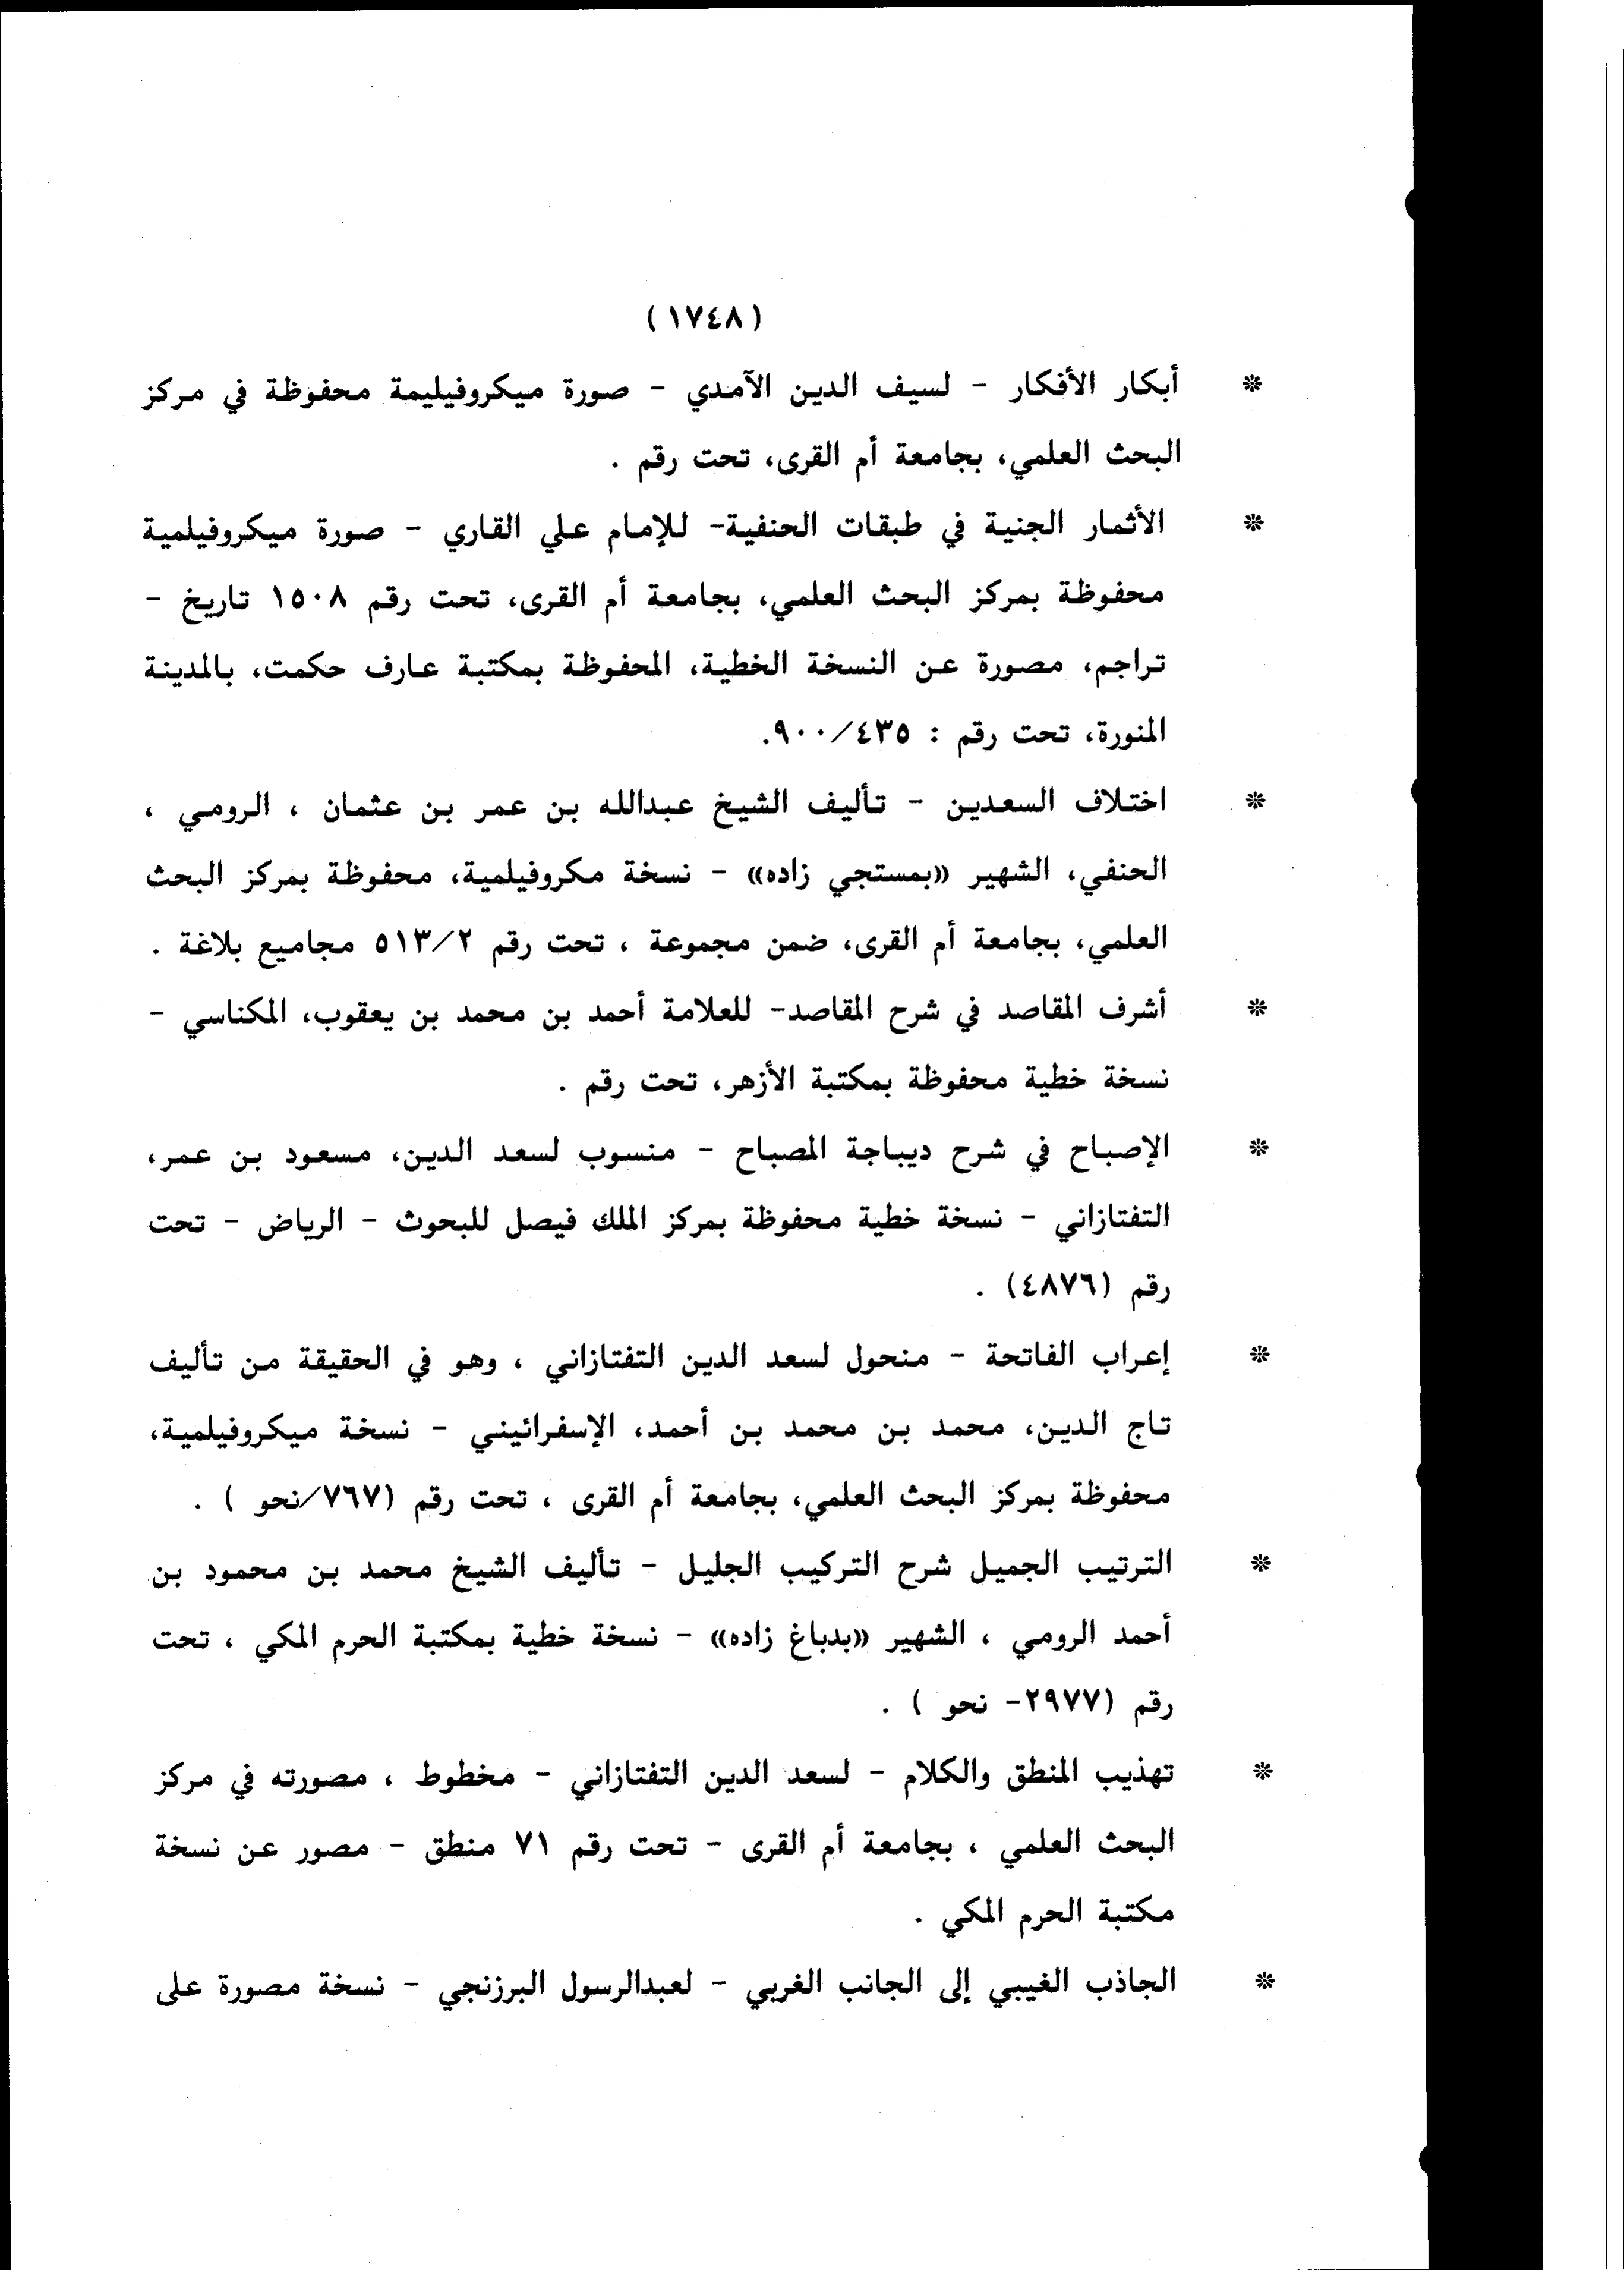 (١٧٤٨)
※ أبكار الأفكار - لسيف الدين الآمدي - صورة ميكروفيليمة محفوظة في مركز
البحث العلمي، بجامعة أم القرى، تحت رقم .
※ الأثمار الجنية في طبقات الحنفية- للإمام علي القاري - صورة ميكروفيلمية
محفوظة بمركز البحث العلمي، بجامعة أم القرى، تحت رقم ١٥٠٨ تاريخ -
تراجم، مصورة عن النسخة الخطية، المحفوظة بمكتبة عارف حكمت، بالمدينة
المنورة، تحت رقم : ٩٠٠/٤٣٥.
※ اختلاف السعدين - تأليف الشيخ عبدالله بن عمر بن عثمان ، الرومي ،
الحنفي، الشهير «بمستجي زاده» - نسخة مكروفيلمية، محفوظة بمركز البحث
العلمي، بجامعة أم القرى، ضمن مجموعة ، تحت رقم ٥١٣/٢ مجاميع بلاغة .
※ أشرف المقاصد في شرح المقاصد- للعلامة أحمد بن محمد بن يعقوب، المكناسي -
نسخة خطية محفوظة بمكتبة الأزهر، تحت رقم .
※ الإصباح في شرح ديباجة المصباح - منسوب لسعد الدين، مسعود بن عمر،
التفتازاني - نسخة خطية محفوظة بمركز الملك فيصل للبحوث - الرياض - تحت
رقم (٤٨٧٦) .
※ إعراب الفاتحة - منحول لسعد الدين التفتازاني ، وهو في الحقيقة من تأليف
تاج الدين، محمد بن محمد بن أحمد، الإسفرائيني - نسخة ميكروفيلمية،
محفوظة بمركز البحث العلمي، بجامعة أم القرى ، تحت رقم (٧٦٧/نحو ) .
※ الترتيب الجميل شرح التركيب الجليل - تأليف الشيخ محمد بن محمود بن
أحمد الرومي ، الشهير «بدباغ زاده» - نسخة خطية بمكتبة الحرم المكي ، تحت
رقم (٢٩٧٧- نحو ) .
※ تهذيب المنطق والكلام - لسعد الدين التفتازاني - مخطوط ، مصورته في مركز
البحث العلمي ، بجامعة أم القرى - تحت رقم ٧١ منطق - مصور عن نسخة
مكتبة الحرم المكي .
※ الجاذب الغيبي إلى الجانب الغربي - لعبدالرسول البرزنجي - نسخة مصورة على